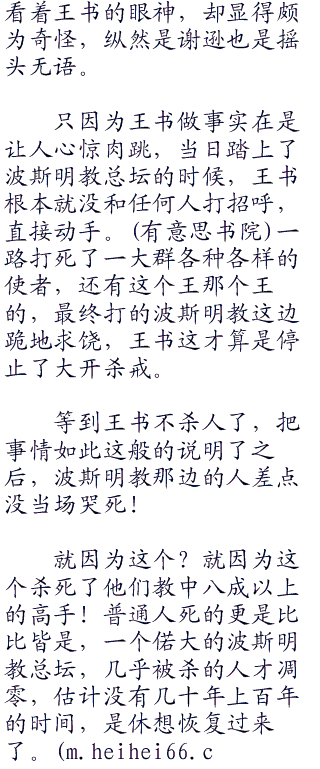 看着王书的眼神，却显得颇
为奇怪，纵然是谢逊也是摇
头无语。
只因为王书做事实在是
让人心惊肉跳，当日踏上了
波斯明教总坛的时候，王书
根本就没和任何人打招呼，
直接动手。(有意思书院)一
路打死了一大群各种各样的
使者，还有这个王那个王
的，最终打的波斯明教这边
跪地求饶，王书这才算是停
止了大开杀戒。
等到王书不杀人了，把
事情如此这般的说明了之
后，波斯明教那边的人差点
没当场哭死！
就因为这个？就因为这
个杀死了他们教中八成以上
的高手！普通人死的更是比
比皆是，一个偌大的波斯明
教总坛，几乎被杀的人才凋
零，估计没有几十年上百年
的时间，是休想恢复过来
了。(m.heihei66.c